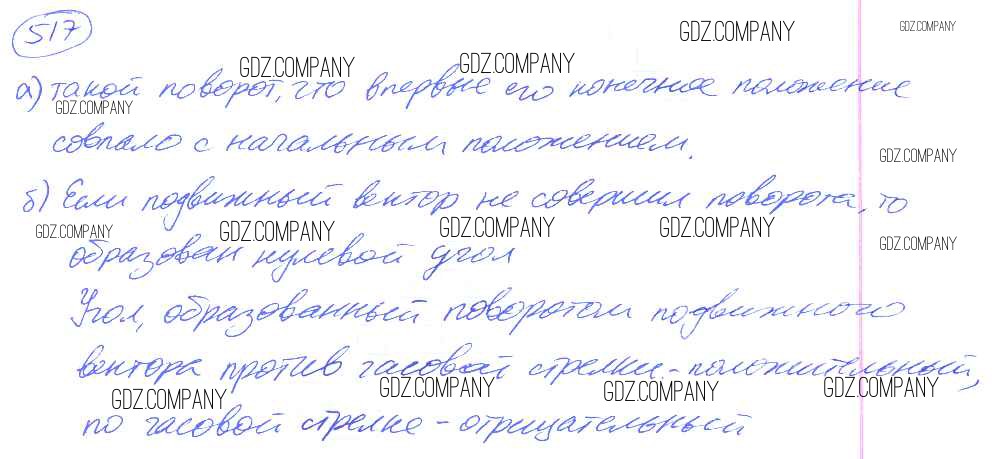 517
GDZ.COMPANY GDZ.COMPANY
GDZ.COMPANY GDZ.COMPANY
а) такой поворот, что впервые его конечное положение
GDZ.COMPANY
совпало с начальным положением.
GDZ.COMPANY
б) Если подвижный вектор не совершил поворота, то
GDZ.COMPANY GDZ.COMPANY GDZ.COMPANY GDZ.COMPANY
GDZ.COMPANY
образован нулевой угол
Угол, образованный поворотом подвижного
вектора против часовой стрелки, - положительный,
GDZ.COMPANY GDZ.COMPANY GDZ.COMPANY GDZ.COMPANY
по часовой стрелке - отрицательный